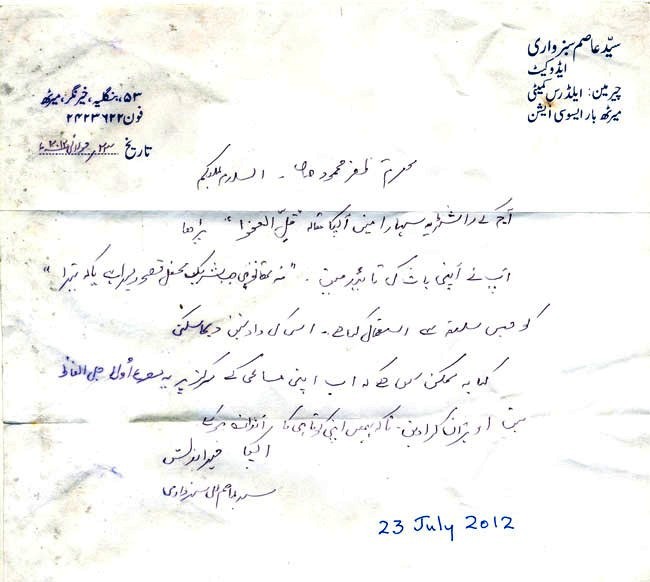 سیّد عاصم سبزواری
ایڈوکیٹ
چیرمین: ایلڈرس کمیٹی
میرٹھ بار ایسوسی ایشن
۵۳، بنگلیہ، خیرنگر، میرٹھ
فون ۲۴۲۳۶۲۲
تاریخ ۲۳ جولائی ۲۰۱۲ء
محترم ظفر محمود صاحب ۔ السلام علیکم
آج کے راشٹریہ سہارا میں آپکا مقالہ "قل العفو" پڑھا
آپ نے اپنی بات کی تائید میں ۔ "نہ تھا
کو جس سلیقہ سے استعمال کیا ہے ۔ اس کی داد نہیں دیجاسکتی
کیا یہ ممکن نہیں ہے کہ آپ اپنی مساعی کے مرکز پر یہ مصرعہ اُولیٰ جلی الفاظ
میں آویزاں کرا دیں ۔ تاکہ ہمیں اپنی کوتاہی کا اندازہ ہوسکے
آپکا خیراندیش
سید عاصم علی سبزواری
23 July 2012